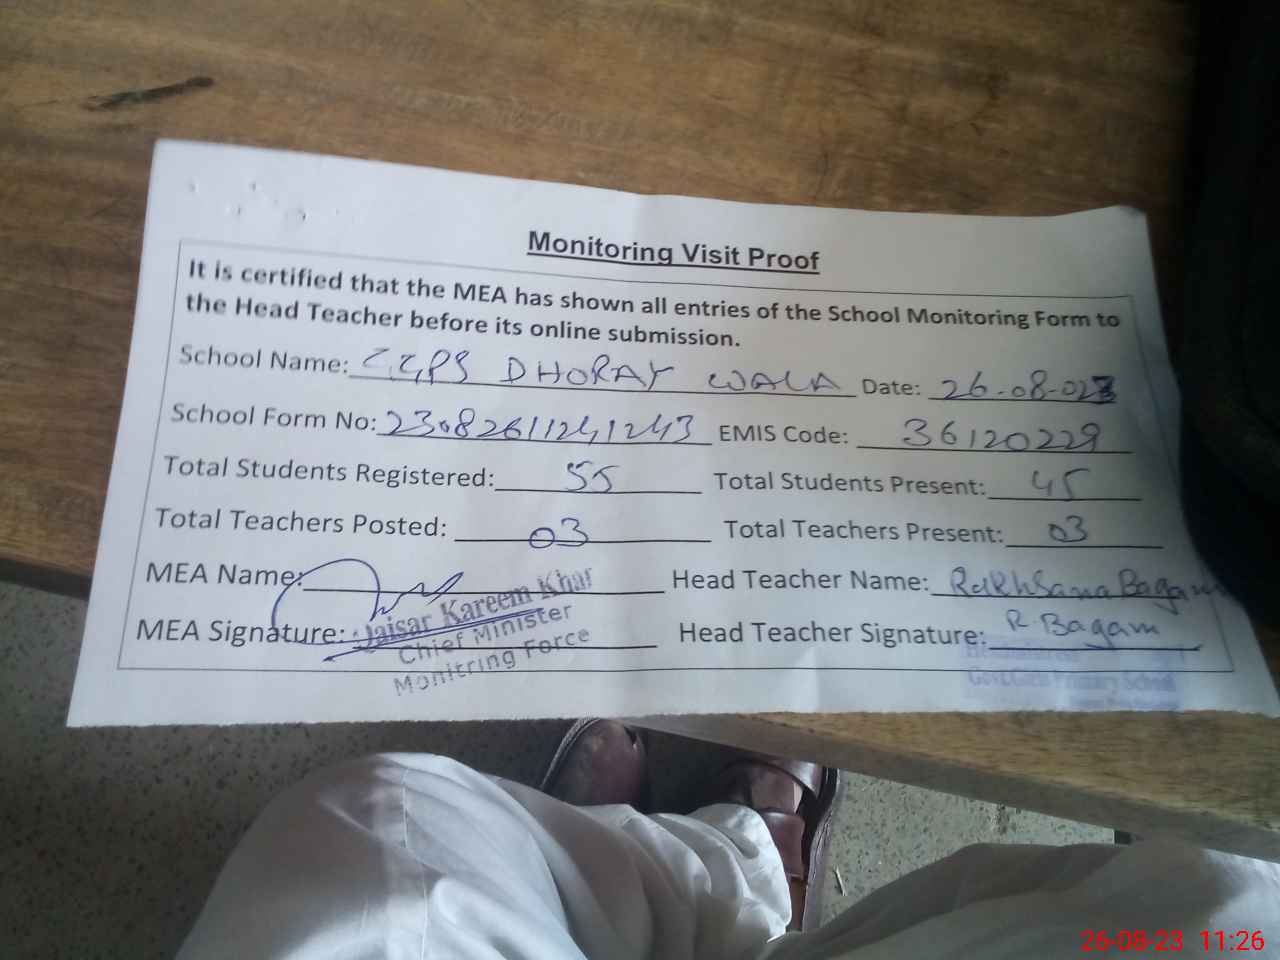 Monitoring Visit Proof
It is certified that the MEA has shown all entries of the School Monitoring Form to
the Head Teacher before its online submission.
School Name: GGPS DHORAY WALA Date: 26-08-023
School Form No: 23082611241243 EMIS Code: 36120229
Total Students Registered: 55 Total Students Present: 45
Total Teachers Posted: 03 Total Teachers Present: 03
MEA Name: Head Teacher Name: RukhSana Bagam
MEA Signature: Jaisar Kareem Khar Head Teacher Signature: R. Bagam
Chief Minister
Monitring Force
Govt. Girls Primary School
26-08-23 11:26